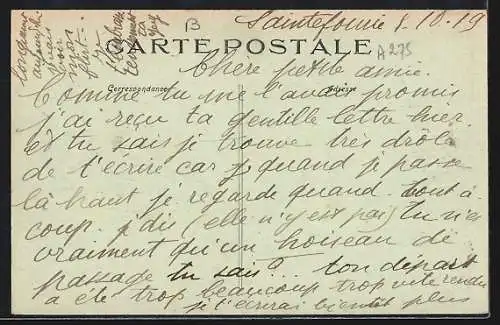 Saintefourie 8.10.19
B
A 275
CARTE POSTALE
Correspondance
Adresse
Chère petite amie.
Comme tu me l'avais promis
j'ai reçu ta gentille lettre hier.
et tu sais je trouve très drôle
de t'écrire car quand je passe
là haut je regarde quand tout à
coup. j'dis (elle n'y est pas) Tu n'es
vraiment qu'un hoiseau de
passage tu sais?... ton départ
a été trop beaucoup trop vite rendu
je t'écrirai bientôt plus
longuement
aujourd'hui
mais